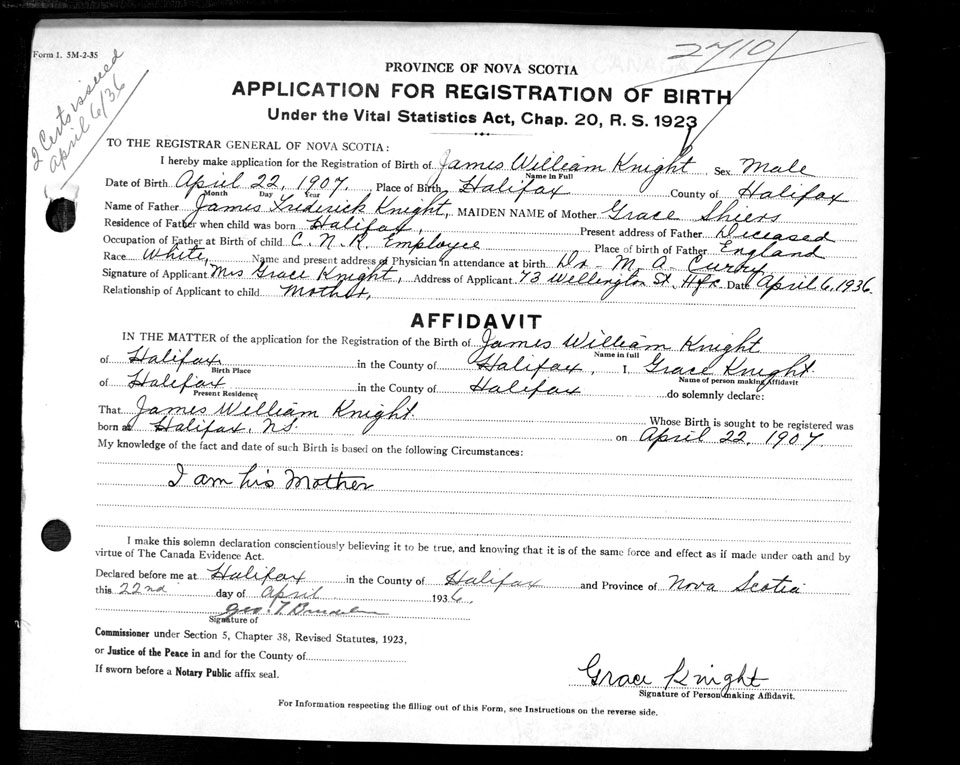 Form 1. 5M-2-35
2710
2 Certs issued
april 6/36
PROVINCE OF NOVA SCOTIA
APPLICATION FOR REGISTRATION OF BIRTH
Under the Vital Statistics Act, Chap. 20, R. S. 1923
TO THE REGISTRAR GENERAL OF NOVA SCOTIA:
I hereby make application for the Registration of Birth of James William Knight Sex Male
Name in Full
Date of Birth April 22, 1907. Place of Birth Halifax County of Halifax
Month Day Year
Name of Father James Frederick Knight, MAIDEN NAME of Mother Grace Sheers
Residence of Father when child was born Halifax, Present address of Father Deceased
Occupation of Father at Birth of child C. N. R. Employee Place of birth of Father England
Race White, Name and present address of Physician in attendance at birth Dr. M. A. Curry
Signature of Applicant Mrs Grace Knight, Address of Applicant 73 Wellington St. Hfx. Date April 6, 1936.
Relationship of Applicant to child Mother,
AFFIDAVIT
IN THE MATTER of the application for the Registration of the Birth of James William Knight
Name in full
of Halifax in the County of Halifax, I, Grace Knight
Birth Place Name of person making Affidavit
of Halifax in the County of Halifax do solemnly declare:
Present Residence
That James William Knight Whose Birth is sought to be registered was
born at Halifax, N.S. on April 22, 1907.
My knowledge of the fact and date of such Birth is based on the following Circumstances:
I am his Mother
I make this solemn declaration conscientiously believing it to be true, and knowing that it is of the same force and effect as if made under oath and by
virtue of The Canada Evidence Act.
Declared before me at Halifax in the County of Halifax and Province of Nova Scotia
this 22nd day of April 1936.
Geo. T
Signature of
Commissioner under Section 5, Chapter 38, Revised Statutes, 1923,
or Justice of the Peace in and for the County of
If sworn before a Notary Public affix seal.
Grace Knight
Signature of Person making Affidavit.
For Information respecting the filling out of this Form, see Instructions on the reverse side.